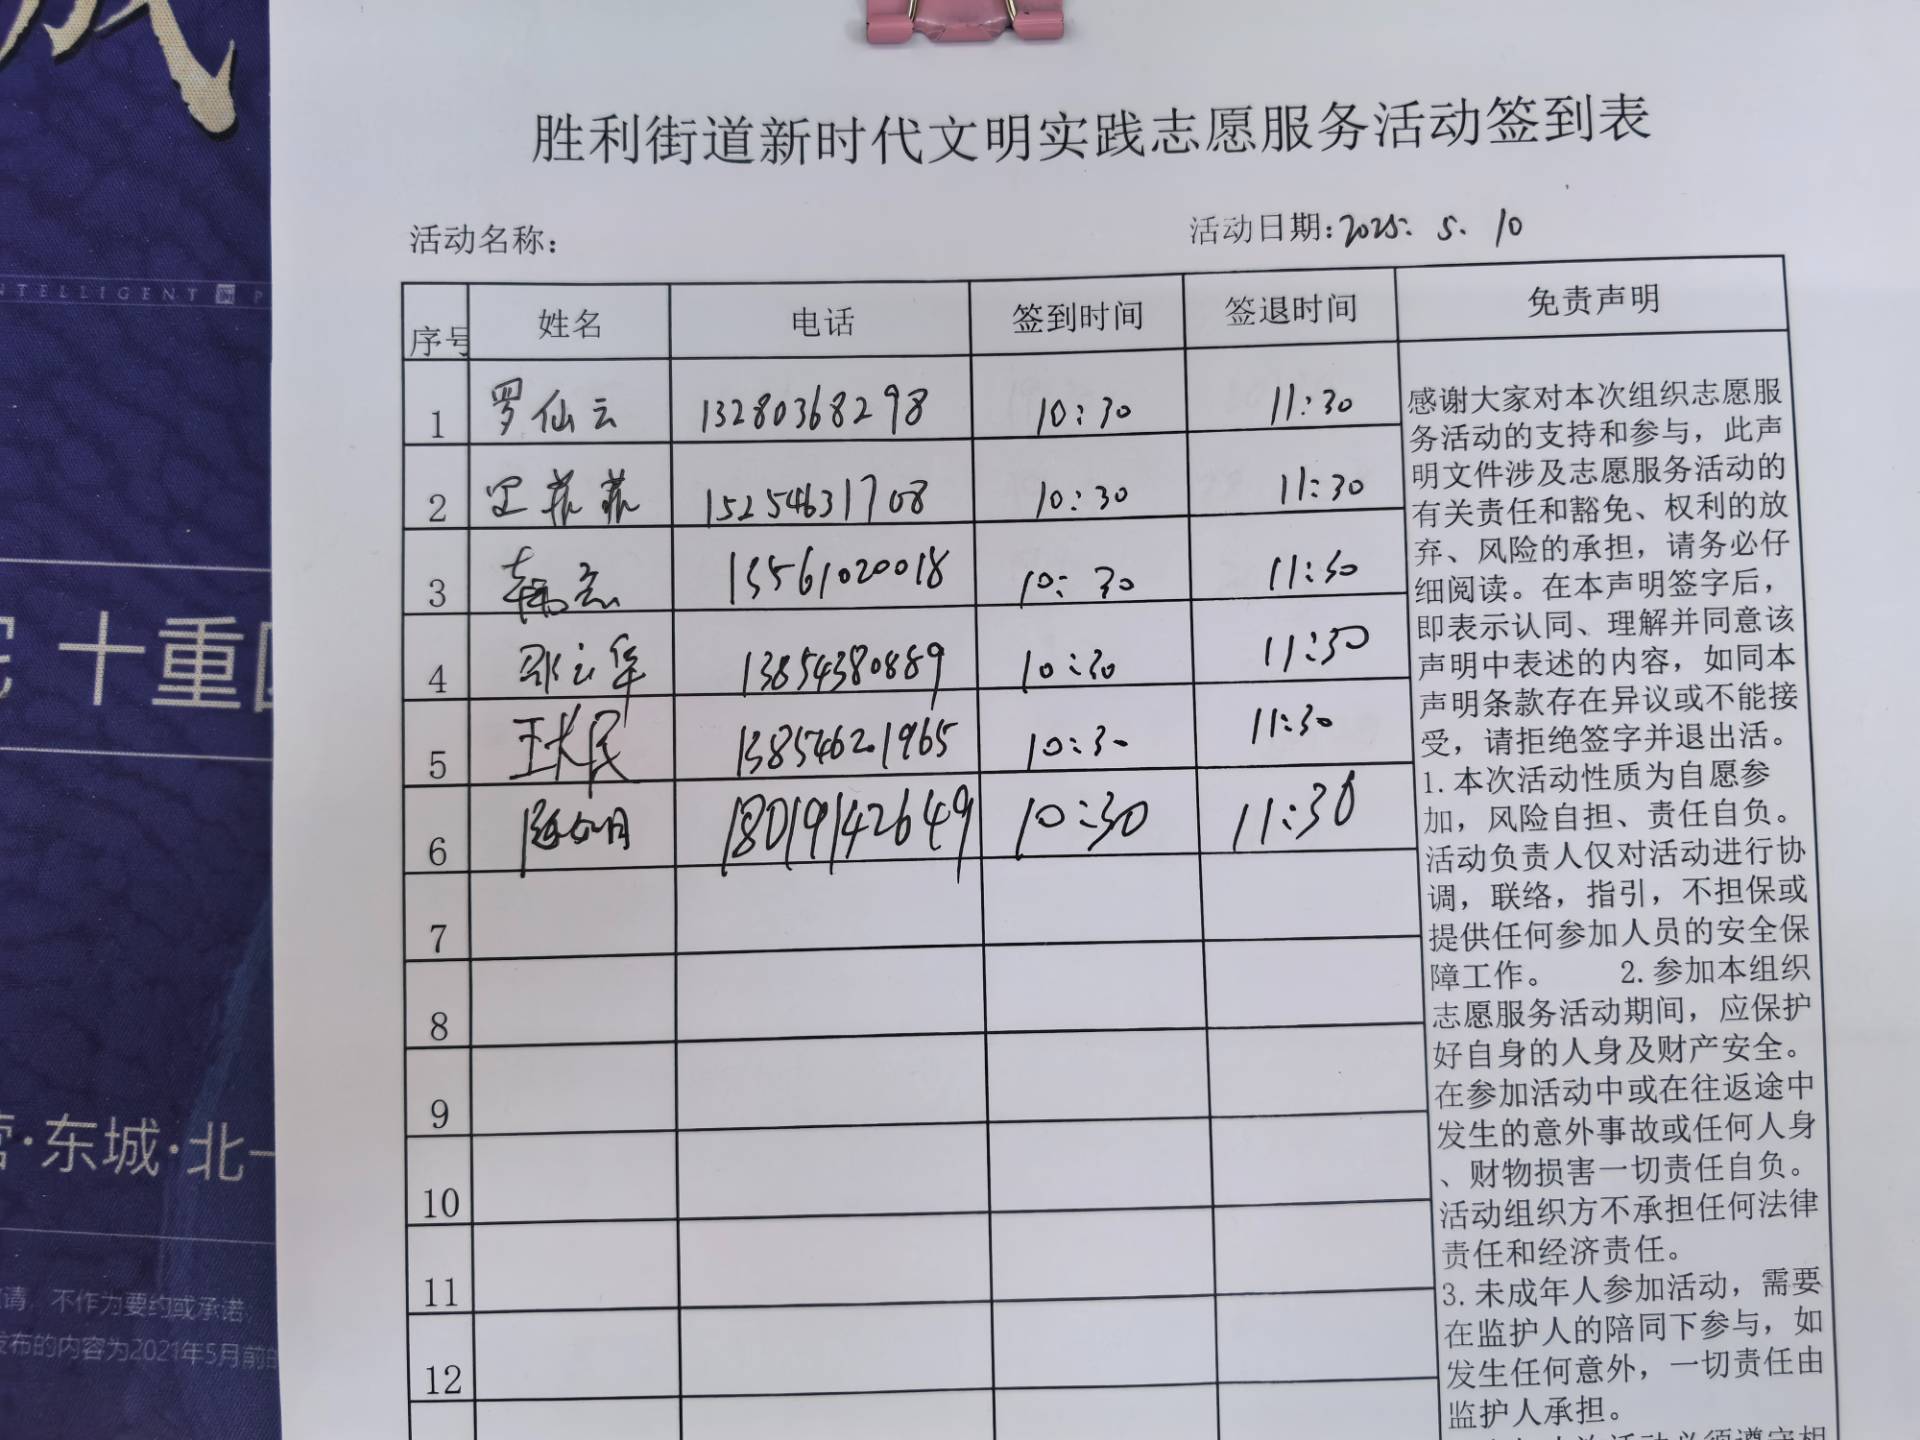 INTELLIGENT
十重
·东城·北一
请，不作为要约或承诺；
发布的内容为2021年5月前的
胜利街道新时代文明实践志愿服务活动签到表
活动名称：
活动日期：2025. 5. 10
序号 姓名 电话 签到时间 签退时间 免责声明
1 罗仙云 13280368298 10:30 11:30
2 菲菲 15254631708 10:30 11:30
3 13561020018 10:30 11:30
4 邵云华 13854380889 10:30 11:30
5 王民 13854621965 10:30 11:30
6 18019142649 10:30 11:30
7
8
9
10
11
12
感谢大家对本次组织志愿服
务活动的支持和参与，此声
明文件涉及志愿服务活动的
有关责任和豁免、权利的放
弃、风险的承担，请务必仔
细阅读。在本声明签字后，
即表示认同、理解并同意该
声明中表述的内容，如同本
声明条款存在异议或不能接
受，请拒绝签字并退出活。
1.本次活动性质为自愿参
加，风险自担、责任自负。
活动负责人仅对活动进行协
调，联络，指引，不担保或
提供任何参加人员的安全保
障工作。 2.参加本组织
志愿服务活动期间，应保护
好自身的人身及财产安全。
在参加活动中或在往返途中
发生的意外事故或任何人身
、财物损害一切责任自负。
活动组织方不承担任何法律
责任和经济责任。
3.未成年人参加活动，需要
在监护人的陪同下参与，如
发生任何意外，一切责任由
监护人承担。